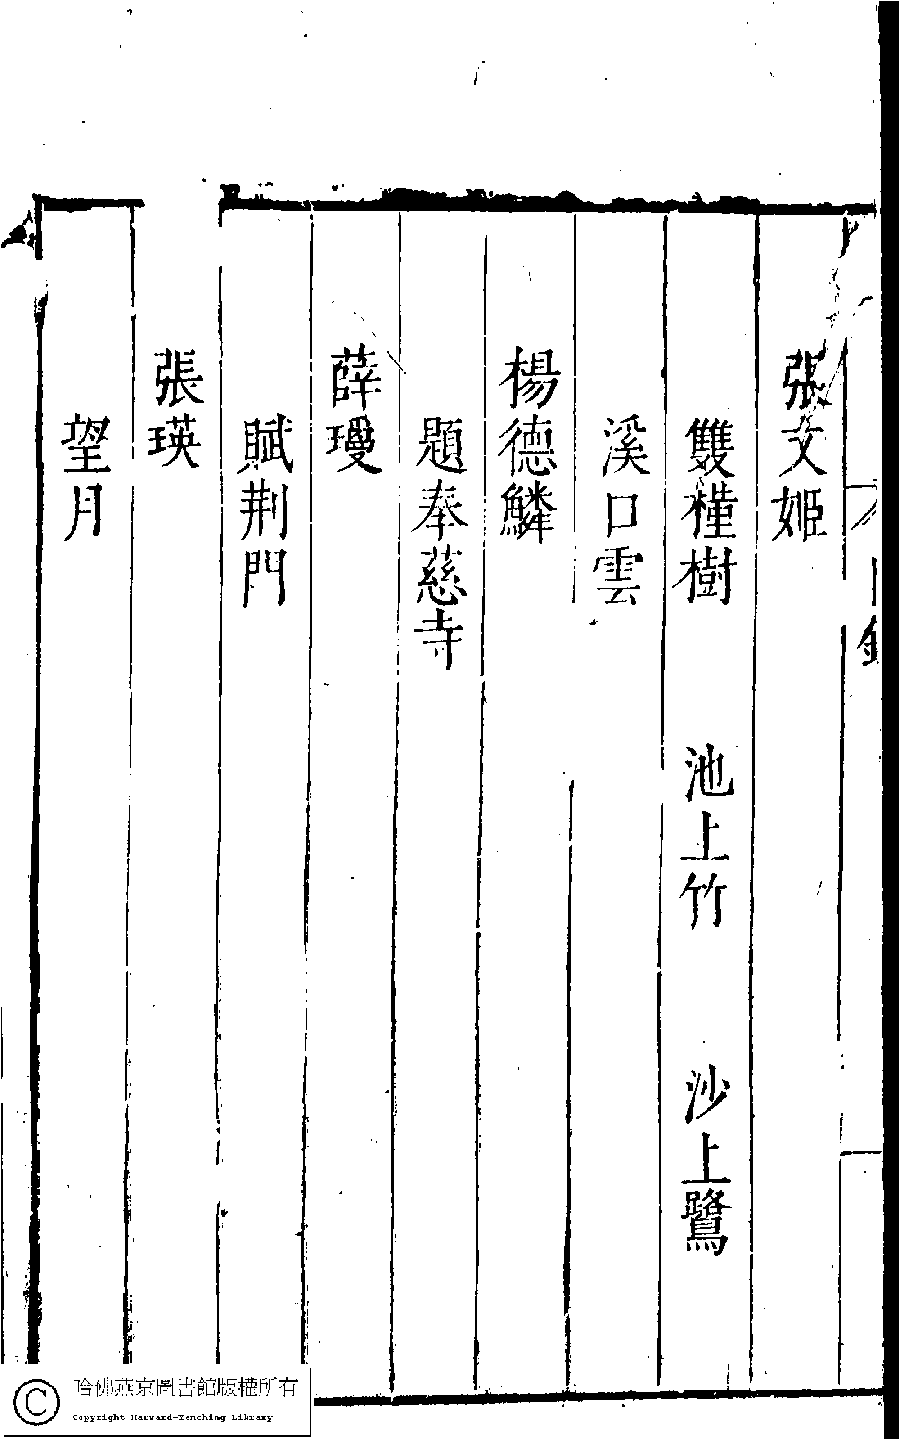 目錄
張文姬
雙槿樹 池上竹 沙上鷺
溪口雲
楊德鱗
題奉慈寺
薛瓊
賦荆門
張瑛
望月
哈佛燕京圖書館版權所有
Copyright Harvard-Yenching Library